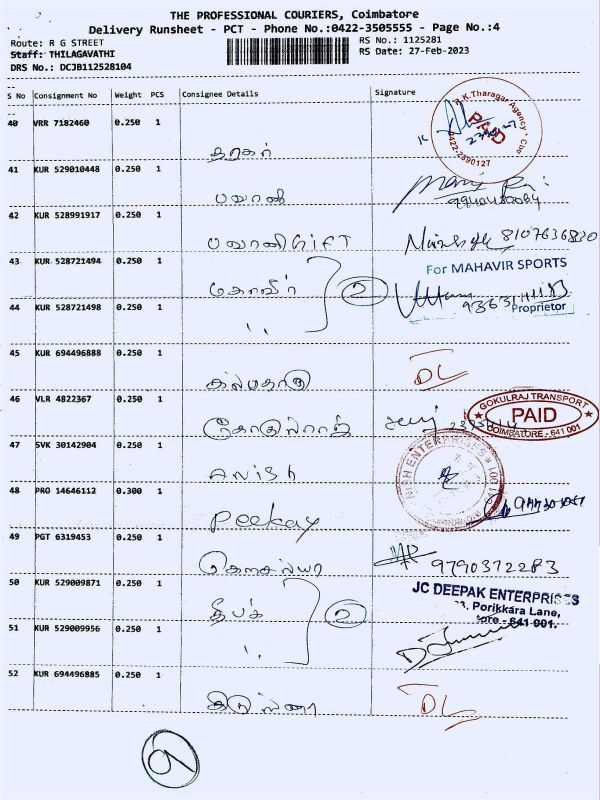 THE PROFESSIONAL COURIERS, Coimbatore
Delivery Runsheet - PCT - Phone No.:0422-3505555 - Page No.:4
Route: R G STREET
RS No.: 1125281
Staff: THILAGAVATHI
RS Date: 27-Feb-2023
DRS No.: DCJB112528104
S No Consignment No Weight PCS Consignee Details Signature
40 VRR 7182460 0.250 1
தரகர்
R.K.Tharagar Agency, Cbe
PAID
0422-2890127
41 KUR 529010448 0.250 1
பவானி
42 KUR 528991917 0.250 1
பவானி GIFT 8107636830
43 KUR 528721494 0.250 1
For MAHAVIR SPORTS
மகாவீர் 2
Proprietor
44 KUR 528721498 0.250 1
,,
45 KUR 694496888 0.250 1
DL
46 VLR 4822367 0.250 1
கோகுல்ராஜ்
GOKULRAJ TRANSPORT
PAID
COIMBATORE - 641 001
47 SVK 30142904 0.250 1
Anish
48 PRO 14646112 0.300 1
Peekay
49 PGT 6319453 0.250 1
கௌசல்யா 9790372283
50 KUR 529009871 0.250 1
JC DEEPAK ENTERPRISES
Porikkara Lane,
641 001.
தீபக் 2
51 KUR 529009956 0.250 1
,,
52 KUR 694496885 0.250 1
DL
9